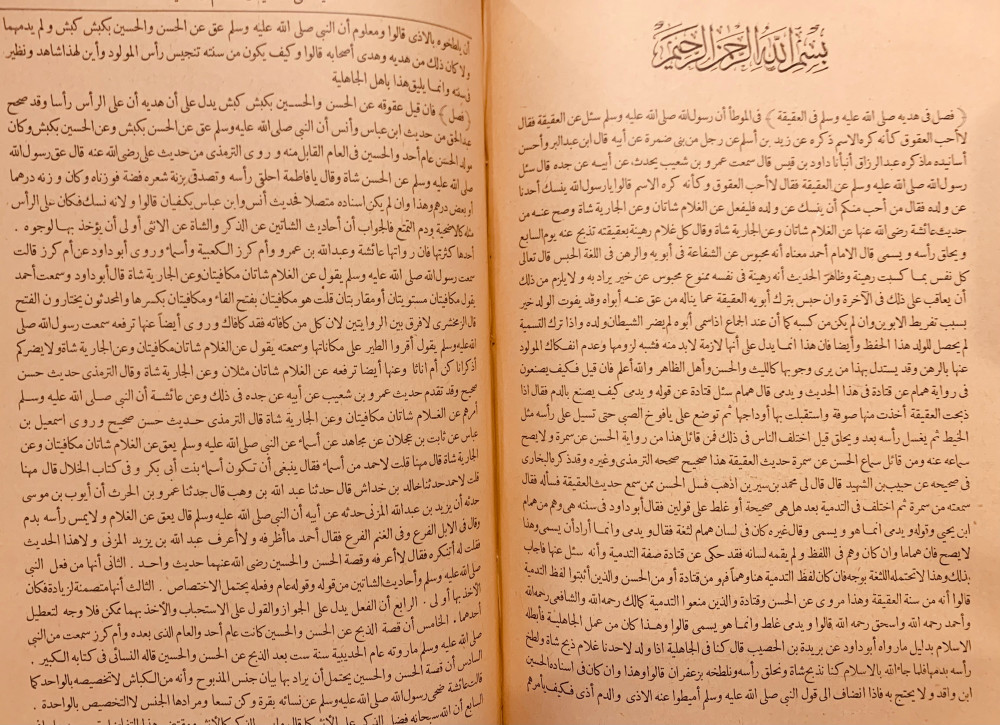 بسم الله الرحمن الرحيم
﴿ فصل فى هديه صلى الله عليه وسلم فى العقيقة ﴾ فى الموطأ أن رسول الله صلى الله عليه وسلم سئل عن العقيقة فقال
لا أحب العقوق كأنه كره الاسم ذكره عن زيد بن أسلم عن رجل من بنى ضمرة عن أبيه قال ابن عبد البر وأحسن
أسانيده ما ذكره عبد الرزاق أنبأنا داود بن قيس قال سمعت عمرو بن شعيب يحدث عن أبيه عن جده قال سئل
رسول الله صلى الله عليه وسلم عن العقيقة فقال لا أحب العقوق وكأنه كره الاسم قالوا يارسول الله ينسك أحدنا
عن ولده فقال من أحب منكم أن ينسك عن ولده فليفعل عن الغلام شاتان وعن الجارية شاة وصح عنه من
حديث عائشة رضى الله عنها عن الغلام شاتان وعن الجارية شاة وقال كل غلام رهينة بعقيقته تذبح عنه يوم السابع
ويحلق رأسه ويسمى قال الامام أحمد معناه أنه محبوس عن الشفاعة فى أبويه والرهن فى اللغة الحبس قال تعالى
كل نفس بما كسبت رهينة وظاهر الحديث أنه رهينة فى نفسه ممنوع محبوس عن خير يراد به ولا يلزم من ذلك
أن يعاقب على ذلك فى الآخرة وان حبس بترك أبويه العقيقة عما يناله من عق عنه أبواه وقد يفوت الولد خير
بسبب تفريط الابوين وان لم يكن من كسبه كما أن عند الجماع اذا سمى أبوه لم يضر الشيطان ولده واذا ترك التسمية
لم يحصل للولد هذا الحفظ وأيضا فان هذا انما يدل على أنها لازمة لا بد منه فشبه لزومها وعدم انفكاك المولود
عنها بالرهن وقد يستدل بهذا من يرى وجوبها كالليث والحسن وأهل الظاهر والله أعلم فان قيل فكيف يصنعون
فى رواية همام عن قتادة فى هذا الحديث ويدمى قال همام سئل قتادة عن قوله ويدمى كيف يصنع بالدم فقال اذا
ذبحت العقيقة أخذت منها صوفة واستقبلت بها أوداجها ثم توضع على يافوخ الصبى حتى تسيل على رأسه مثل
الخيط ثم يغسل رأسه بعد ويحلق قيل اختلف الناس فى ذلك فمن قائل هذا من رواية الحسن عن سمرة ولا يصح
سماعه عنه ومن قائل سماع الحسن عن سمرة حديث العقيقة هذا صحيح صححه الترمذى وغيره وقد ذكره البخارى
فى صحيحه عن حبيب بن الشهيد قال قال لى محمد بن سيرين اذهب فسل الحسن ممن سمع حديث العقيقة فسأله فقال
سمعته من سمرة ثم اختلف فى التدمية بعد هل هى صحيحة أو غلط على قولين فقال أبو داود فى سننه هى وهم من همام
ابن يحيى وقوله ويدمى انما هو ويسمى وقال غيره كان فى لسان همام لثغة فقال ويدمى وانما أراد أن يسمى وهذا
لا يصح فان هماما وان كان وهم فى اللفظ ولم يقمه لسانه فقد حكى عن قتادة صفة التدمية وأنه سئل عنها فأجاب
بذلك وهذا لا تحتمله اللثغة بوجه فان كان لفظ التدمية هنا وهما فهو من قتادة أو من الحسن والذين أثبتوا لفظ التدمية
قالوا أنه من سنة العقيقة وهذا مروى عن الحسن وقتادة والذين منعوا التدمية كمالك رحمه الله والشافعى رحمه الله
وأحمد رحمه الله واسحق رحمه الله قالوا ويدمى غلط وانما هو ويسمى قالوا وهذا كان من عمل الجاهلية فأبطله
الاسلام بدليل ما رواه أبو داود عن بريدة بن الحصيب قال كنا فى الجاهلية اذا ولد لاحدنا غلام ذبح شاة ولطخ
رأسه بدمها فلما جاء الله بالاسلام كنا نذبح شاة ونحلق رأسه ونلطخه بزعفران قالوا وهذا وان كان فى اسناده الحسين
ابن واقد ولا يحتج به فاذا انضاف الى قول النبى صلى الله عليه وسلم أميطوا عنه الاذى والدم أذى فكيف يأمرهم
أن يلطخوه بالاذى قالوا ومعلوم أن النبى صلى الله عليه وسلم عق عن الحسن والحسين بكبش كبش ولم يدمهما
ولا كان ذلك من هديه وهدى أصحابه قالوا وكيف يكون من سنته تنجيس رأس المولود وأين لهذا شاهد ونظير
فى سنته وانما يليق هذا باهل الجاهلية
﴿ فصل ﴾ فان قيل عقوقه عن الحسن والحسين بكبش كبش يدل على أن هديه أن على الرأس رأسا وقد صحح
عبد الحق من حديث ابن عباس وأنس أن النبى صلى الله عليه وسلم عق عن الحسن بكبش وعن الحسين بكبش وكان
مولد الحسن عام أحد والحسين فى العام القابل منه وروى الترمذى من حديث على رضى الله عنه قال عق رسول الله
صلى الله عليه وسلم عن الحسن شاة وقال يا فاطمة احلقى رأسه وتصدقى بزنة شعره فضة فوزناه وكان وزنه درهما
أو بعض درهم وهذا وان لم يكن اسناده متصلا فحديث أنس وابن عباس يكفيان قالوا ولانه نسك فكان على الرأس
مثله كالاضحية ودم التمتع فالجواب أن أحاديث الشاتين عن الذكر والشاة عن الانثى أولى أن يؤخذ بها لوجوه .
أحدها كثرتها فان رواتها عائشة وعبد الله بن عمرو وأم كرز الكعبية وأسماء وروى أبو داود عن أم كرز قالت
سمعت رسول الله صلى الله عليه وسلم يقول عن الغلام شاتان مكافيتان وعن الجارية شاة قال أبو داود وسمعت أحمد
يقول مكافيتان مستويتان أو مقاربتان قلت هو مكافيتان بفتح الفاء ومكافيتان بكسرها والمحدثون يختارون الفتح
قال الزمخشرى لا فرق بين الروايتين لان كل من كافاته فقد كافاك وروى أيضاً عنها ترفعه سمعت رسول الله صلى
الله عليه وسلم يقول أقروا الطير على مكاناتها وسمعته يقول عن الغلام شاتان مكافيتان وعن الجارية شاة ولا يضركم
أذكرانا كن أم اناثا وعنها أيضا ترفعه عن الغلام شاتان مثلان وعن الجارية شاة وقال الترمذى حديث حسن
صحيح وقد تقدم حديث عمرو بن شعيب عن أبيه عن جده فى ذلك وعن عائشة أن النبى صلى الله عليه وسلم
أمرهم عن الغلام شاتان مكافيتان وعن الجارية شاة قال الترمذى حديث حسن صحيح وروى اسمعيل بن
عباس عن ثابت بن عجلان عن مجاهد عن أسماء عن النبى صلى الله عليه وسلم يعق عن الغلام شاتان مكافيتان وعن
الجارية شاة قال مهنا قلت لاحمد من أسماء فقال ينبغى أن تكون أسماء بنت أبى بكر وفى كتاب الخلال قال مهنا
قلت لاحمد حدثنا خالد بن خداش قال حدثنا عبد الله بن وهب قال حدثنا عمرو بن الحرث أن أيوب بن موسى
حدثه أن يزيد بن عبد الله المزنى حدثه عن أبيه أن النبى صلى الله عليه وسلم قال يعق عن الغلام ولا يمس رأسه بدم
وقال فى الابل الفرع وفى الغنم الفرع فقال أحمد ما أظرفه ولا أعرف عبد الله بن يزيد المزنى ولا هذا الحديث
فقلت له أتنكره فقال لا أعرفه وقصة الحسن والحسين رضى الله عنهما حديث واحد . الثانى أنها من فعل النبى
صلى الله عليه وسلم وأحاديث الشاتين من قوله وقوله عام وفعله يحتمل الاختصاص . الثالث أنها متضمنة لزيادة فكان
الأخذ بها أولى . الرابع أن الفعل يدل على الجواز والقول على الاستحباب والأخذ بهما ممكن فلا وجه لتعطيل
أحدهما . الخامس أن قصة الذبح عن الحسن والحسين كانت عام أحد والعام الذى بعده وأم كرز سمعت من النبى
صلى الله عليه وسلم ما روته عام الحديبية سنة ست بعد الذبح عن الحسن والحسين قاله النسائى فى كتابه الكبير .
السادس أن قصة الحسن والحسين يحتمل أن يراد بها بيان جنس المذبوح وأنه من الكباش لا تخصيصه بالواحد كما
قالت عائشة ضحى رسول الله صلى الله عليه وسلم عن نسائه بقرة وكن تسعا ومرادها الجنس لا التخصيص بالواحدة .
السابع أن الله سبحانه فضل الذكر على الأنثى كما قال